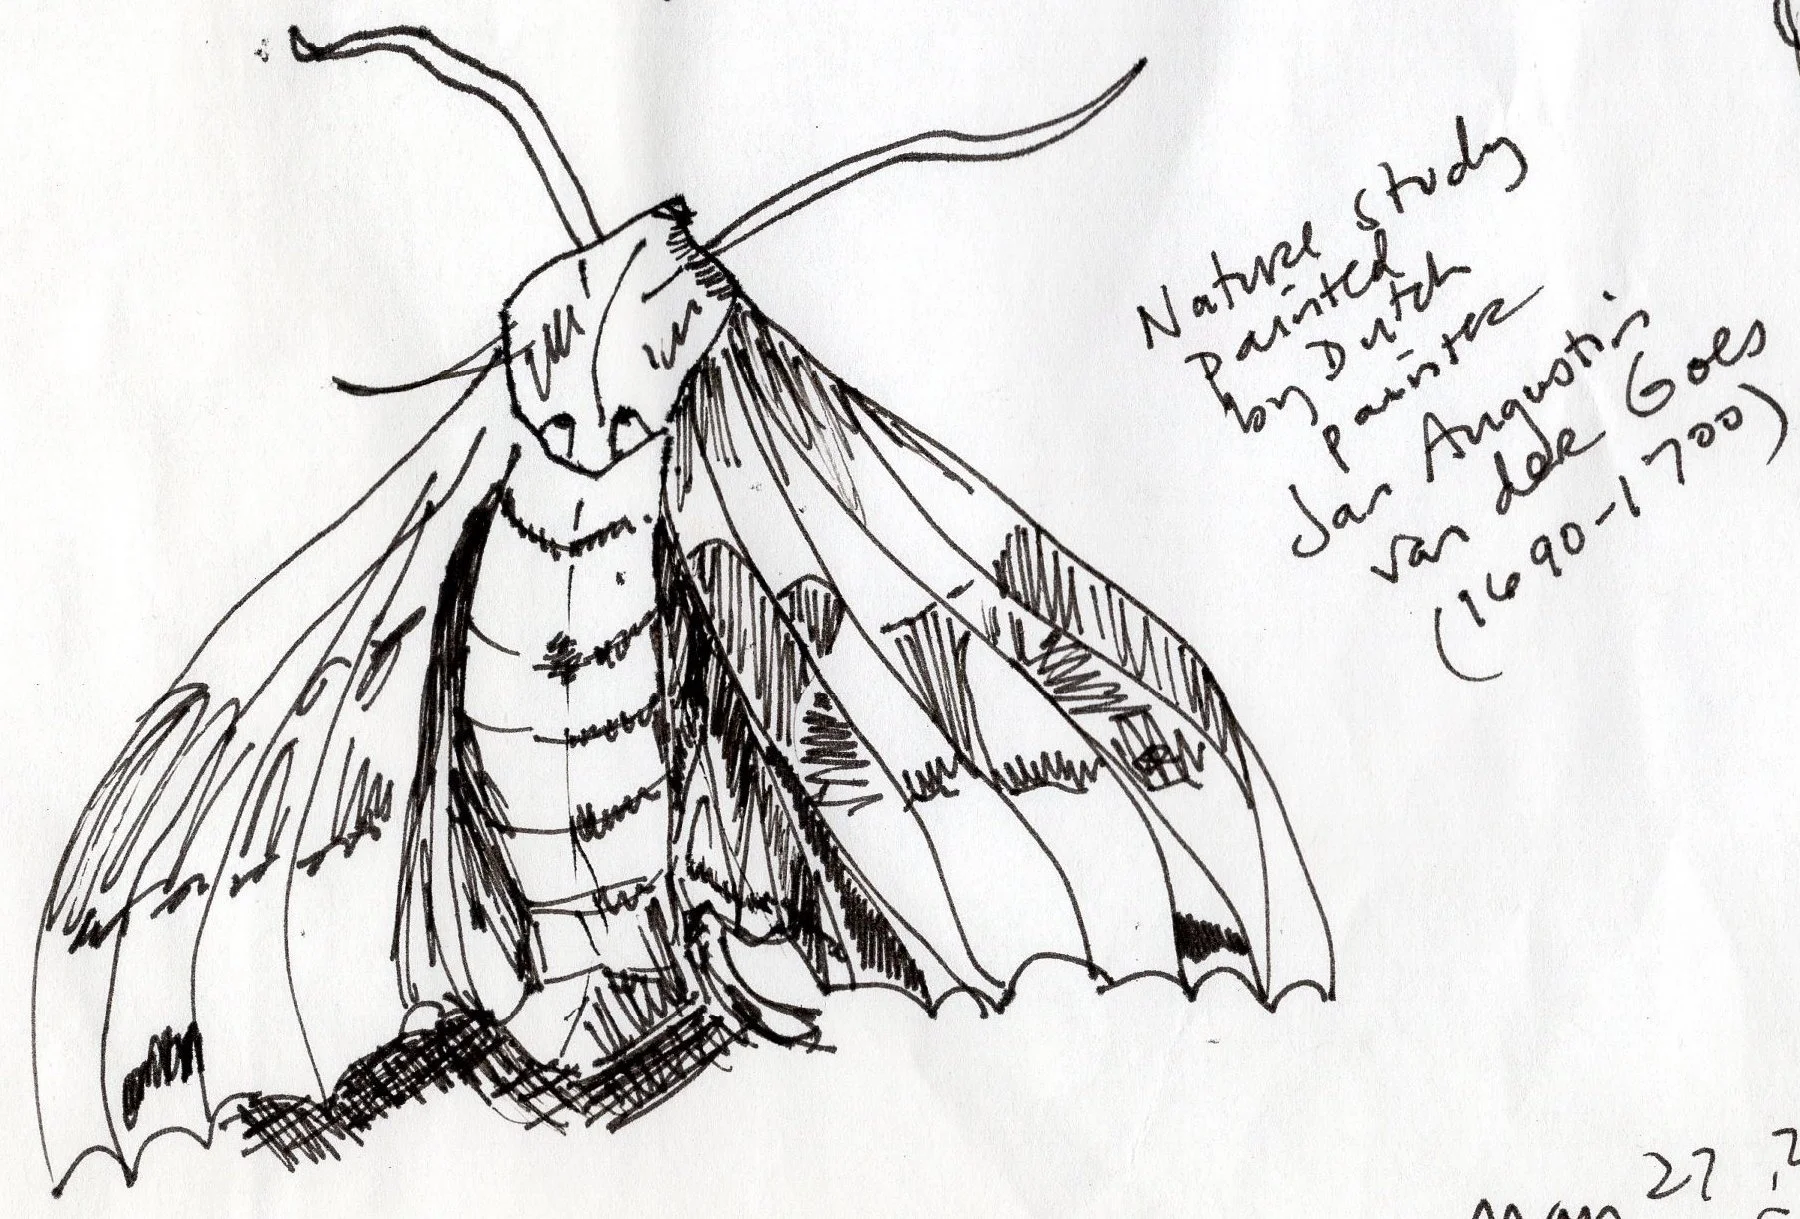 Nature study
painted
by Dutch
painter
Jan Augustin
van der Goes
(1690-1700)
27